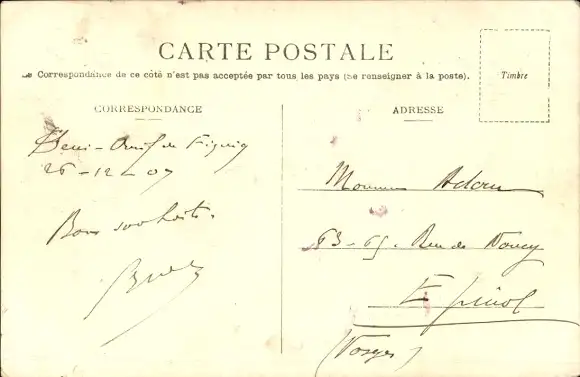 CARTE POSTALE
La Correspondance de ce côté n'est pas acceptée par tous les pays (se renseigner à la poste).
Timbre
CORRESPONDANCE
Beni-Ounif de Figuig
26-12-07
Bons souhaits.
ADRESSE
Monsieur Adam
63-65. Rue de Nancy
Epinal
(Vosges)